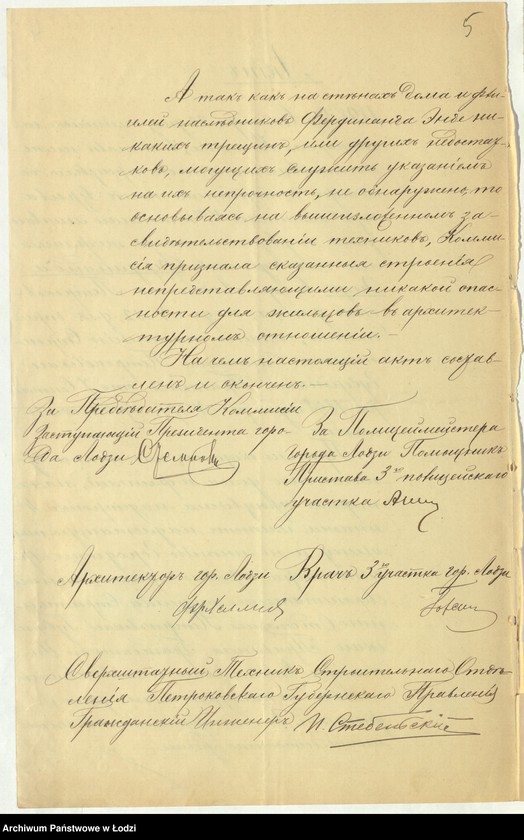 5
А такъ какъ на стѣнахъ дома и фли-
гилей наслѣдниковъ Фердинанда Энде ни-
какихъ трещинъ, или другихъ недостат-
ковъ, могущихъ служить указаніемъ
на ихъ непрочность, не обнаружено, то
основываясь на вышеизложенномъ за-
свидѣтельствованіи техниковъ, Коммис-
сія признала сказанныя строенія
непредставляющими никакой опас-
ности для жильцовъ въ архитек-
турномъ отношеніи. —
На чемъ настоящій актъ состав-
ленъ и оконченъ. —
За Предсѣдателя Коммисіи
Заступающій Президента горо-
да Лодзи
За Полицеймейстера
города Лодзи Помощникъ
Пристава 3го полицейскаго
участка
Архитекторъ гор. Лодзи
Врачъ 3го участка гор. Лодзи
Сверхштатный Техникъ Строительнаго Отдѣ-
ленія Петроковскаго Губернскаго Правленія
Гражданскій Инженеръ И. Стебельскій
Archiwum Państwowe w Łodzi